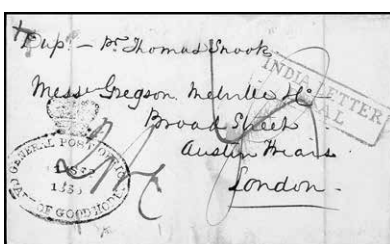 Dup. - Pr. Thomas Snook
Messrs Gregson Melville &
Broad Street
Austin Friars
London.
INDIA LETTER
GENERAL POST OFFICE
CAPE OF GOOD HOPE